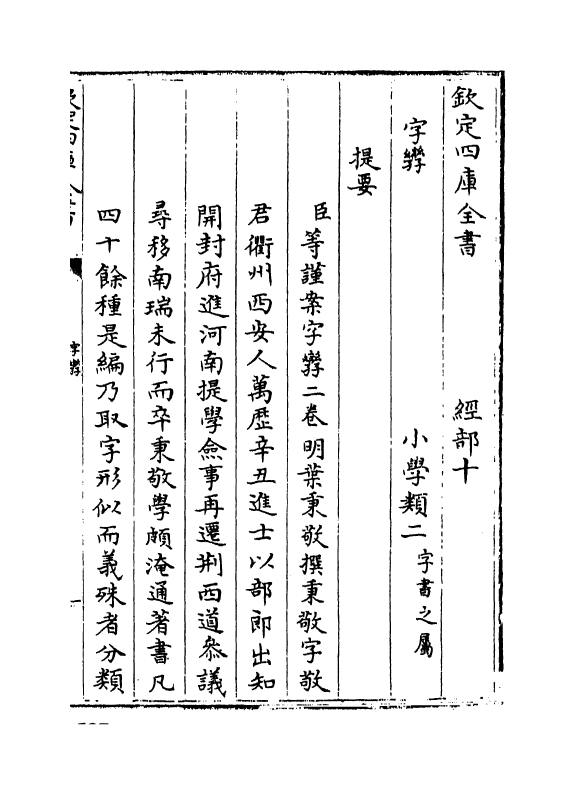 欽定四庫全書　經部十
字孿　小學類二字書之屬
提要
臣等謹案字孿二卷明葉秉敬撰秉敬字敬
君衢州西安人萬歷辛丑進士以部郎出知
開封府進河南提學僉事再遷荆西道叅議
尋移南瑞未行而卒秉敬學頗淹通著書凡
四十餘種是編乃取字形似而義殊者分類
字孿
一